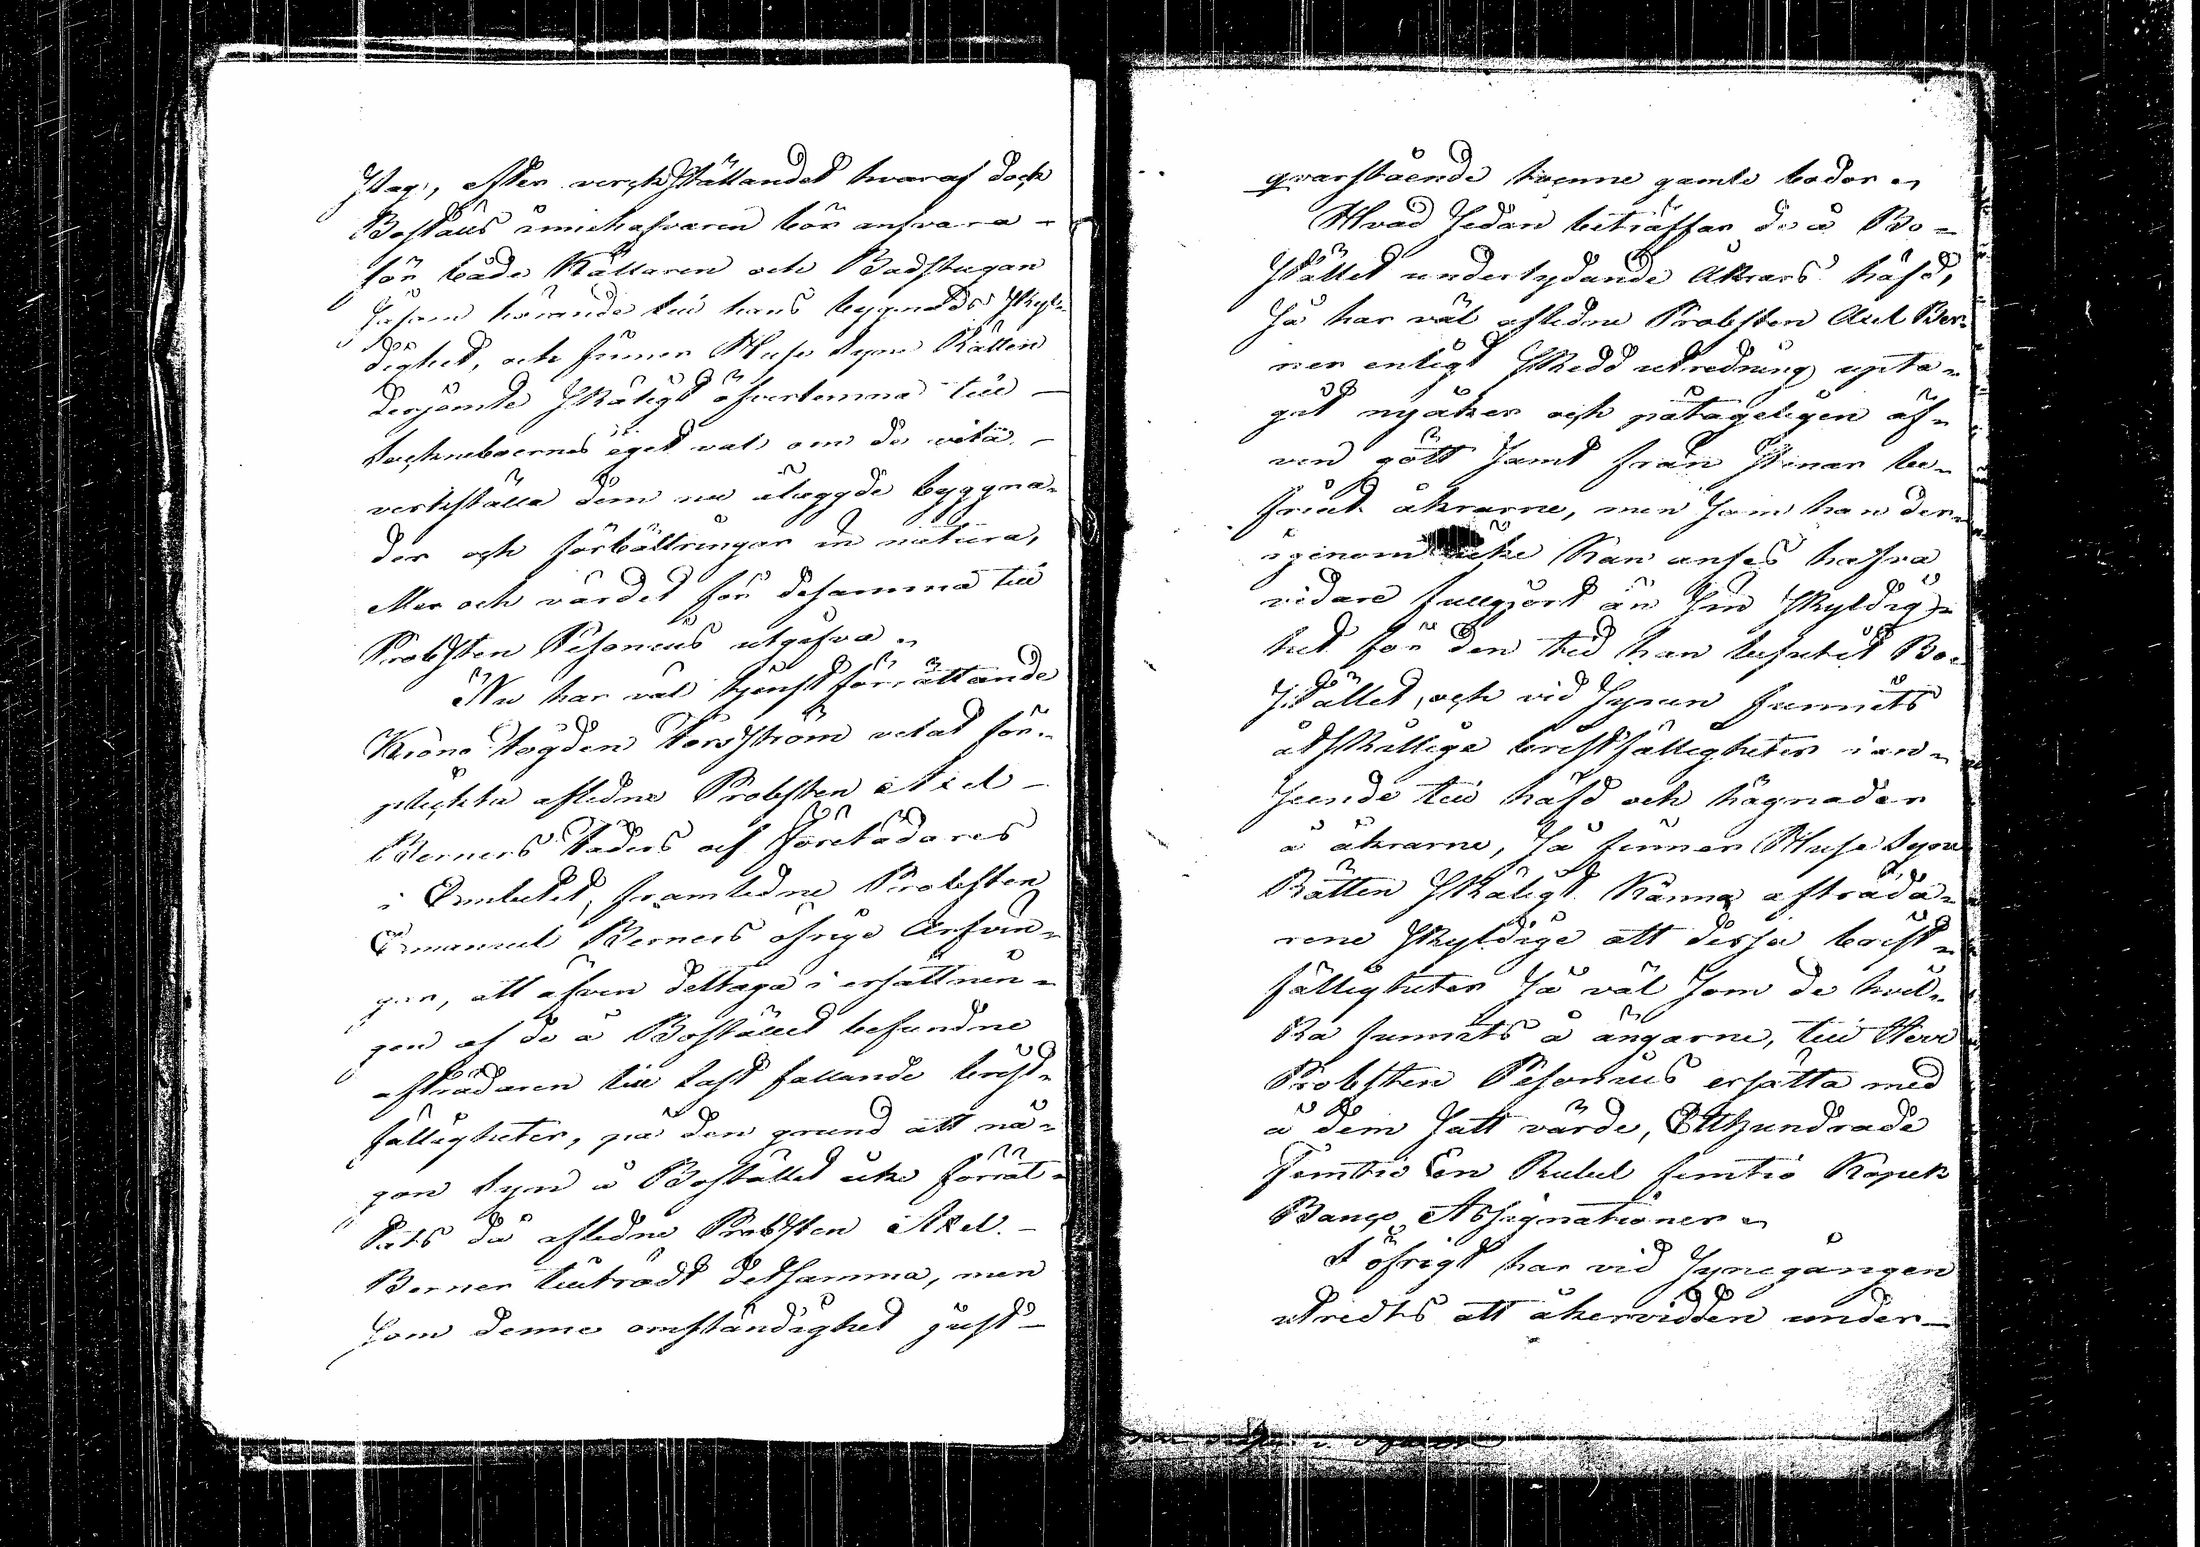 slag, efter verckställandet hvaraf dock
Boställs innehafvaren bör ansvara –
för både Källaren och Badstugan
såsom hörande till hans bygnads skyl-
dighet, och finner Husesyns Rätten
derjemte skäligt öfverlemna till –
Sockneboernes eget val om de vilja –
verkställa dem nu ålaggde byggna-
der och förbättringar in natura,
eller ock värdet för desamma till
Probsten Pesonius utgifva.
Nu har väl tjenstförrättande
Krono Fogden Forsström velat för-
plickta afledne Probsten Axel –
Berners Faders och Företrädares
i Embetet, framledne Probsten
Emanuel Berners öfrige Arfvin-
gar, att äfven deltaga i ersättnin-
gen af de å Bostället befundne
afträdaren till last fallande brist-
fälligheter, på den grund att nå-
gon Syn å Bostället icke förrät-
tats då afledne Probsten Axel –
Berner tillträdt detsamma, men
som denne omständighet just –
qvarstående tvenne gamle bodor.
Hvad sedan beträffar de å Bo-
stället underlydande Åkrars häfd,
så har väl afledne Probsten Axel Ber-
ner enligt skedd utredning upta-
git nyåker och påtageligen äf-
ven gött samt från stenar be-
friat åkrarne, men som han der-
igenom icke kan anses hafva
vidare fullgjort än sin skyldig-
het för den tid han besutit Bo-
stället, och vid synen funnits
åtskillige bristfälligheter i an-
seende till häfd och hägnader
å åkrarne, så finner Husesyns
Rätten skäligt känna afträda-
rene skyldige att dessa brist-
fälligheter så väl som de hvil-
ka funnits å ängarne, till Herr
Probsten Pesonius ersätta med
å dem satt värde, Etthundrade
Femtio En Rubel femtio Kopek
Banco Assignationer.
I öfrigt har vid synegången
utredts att åkervidden under –